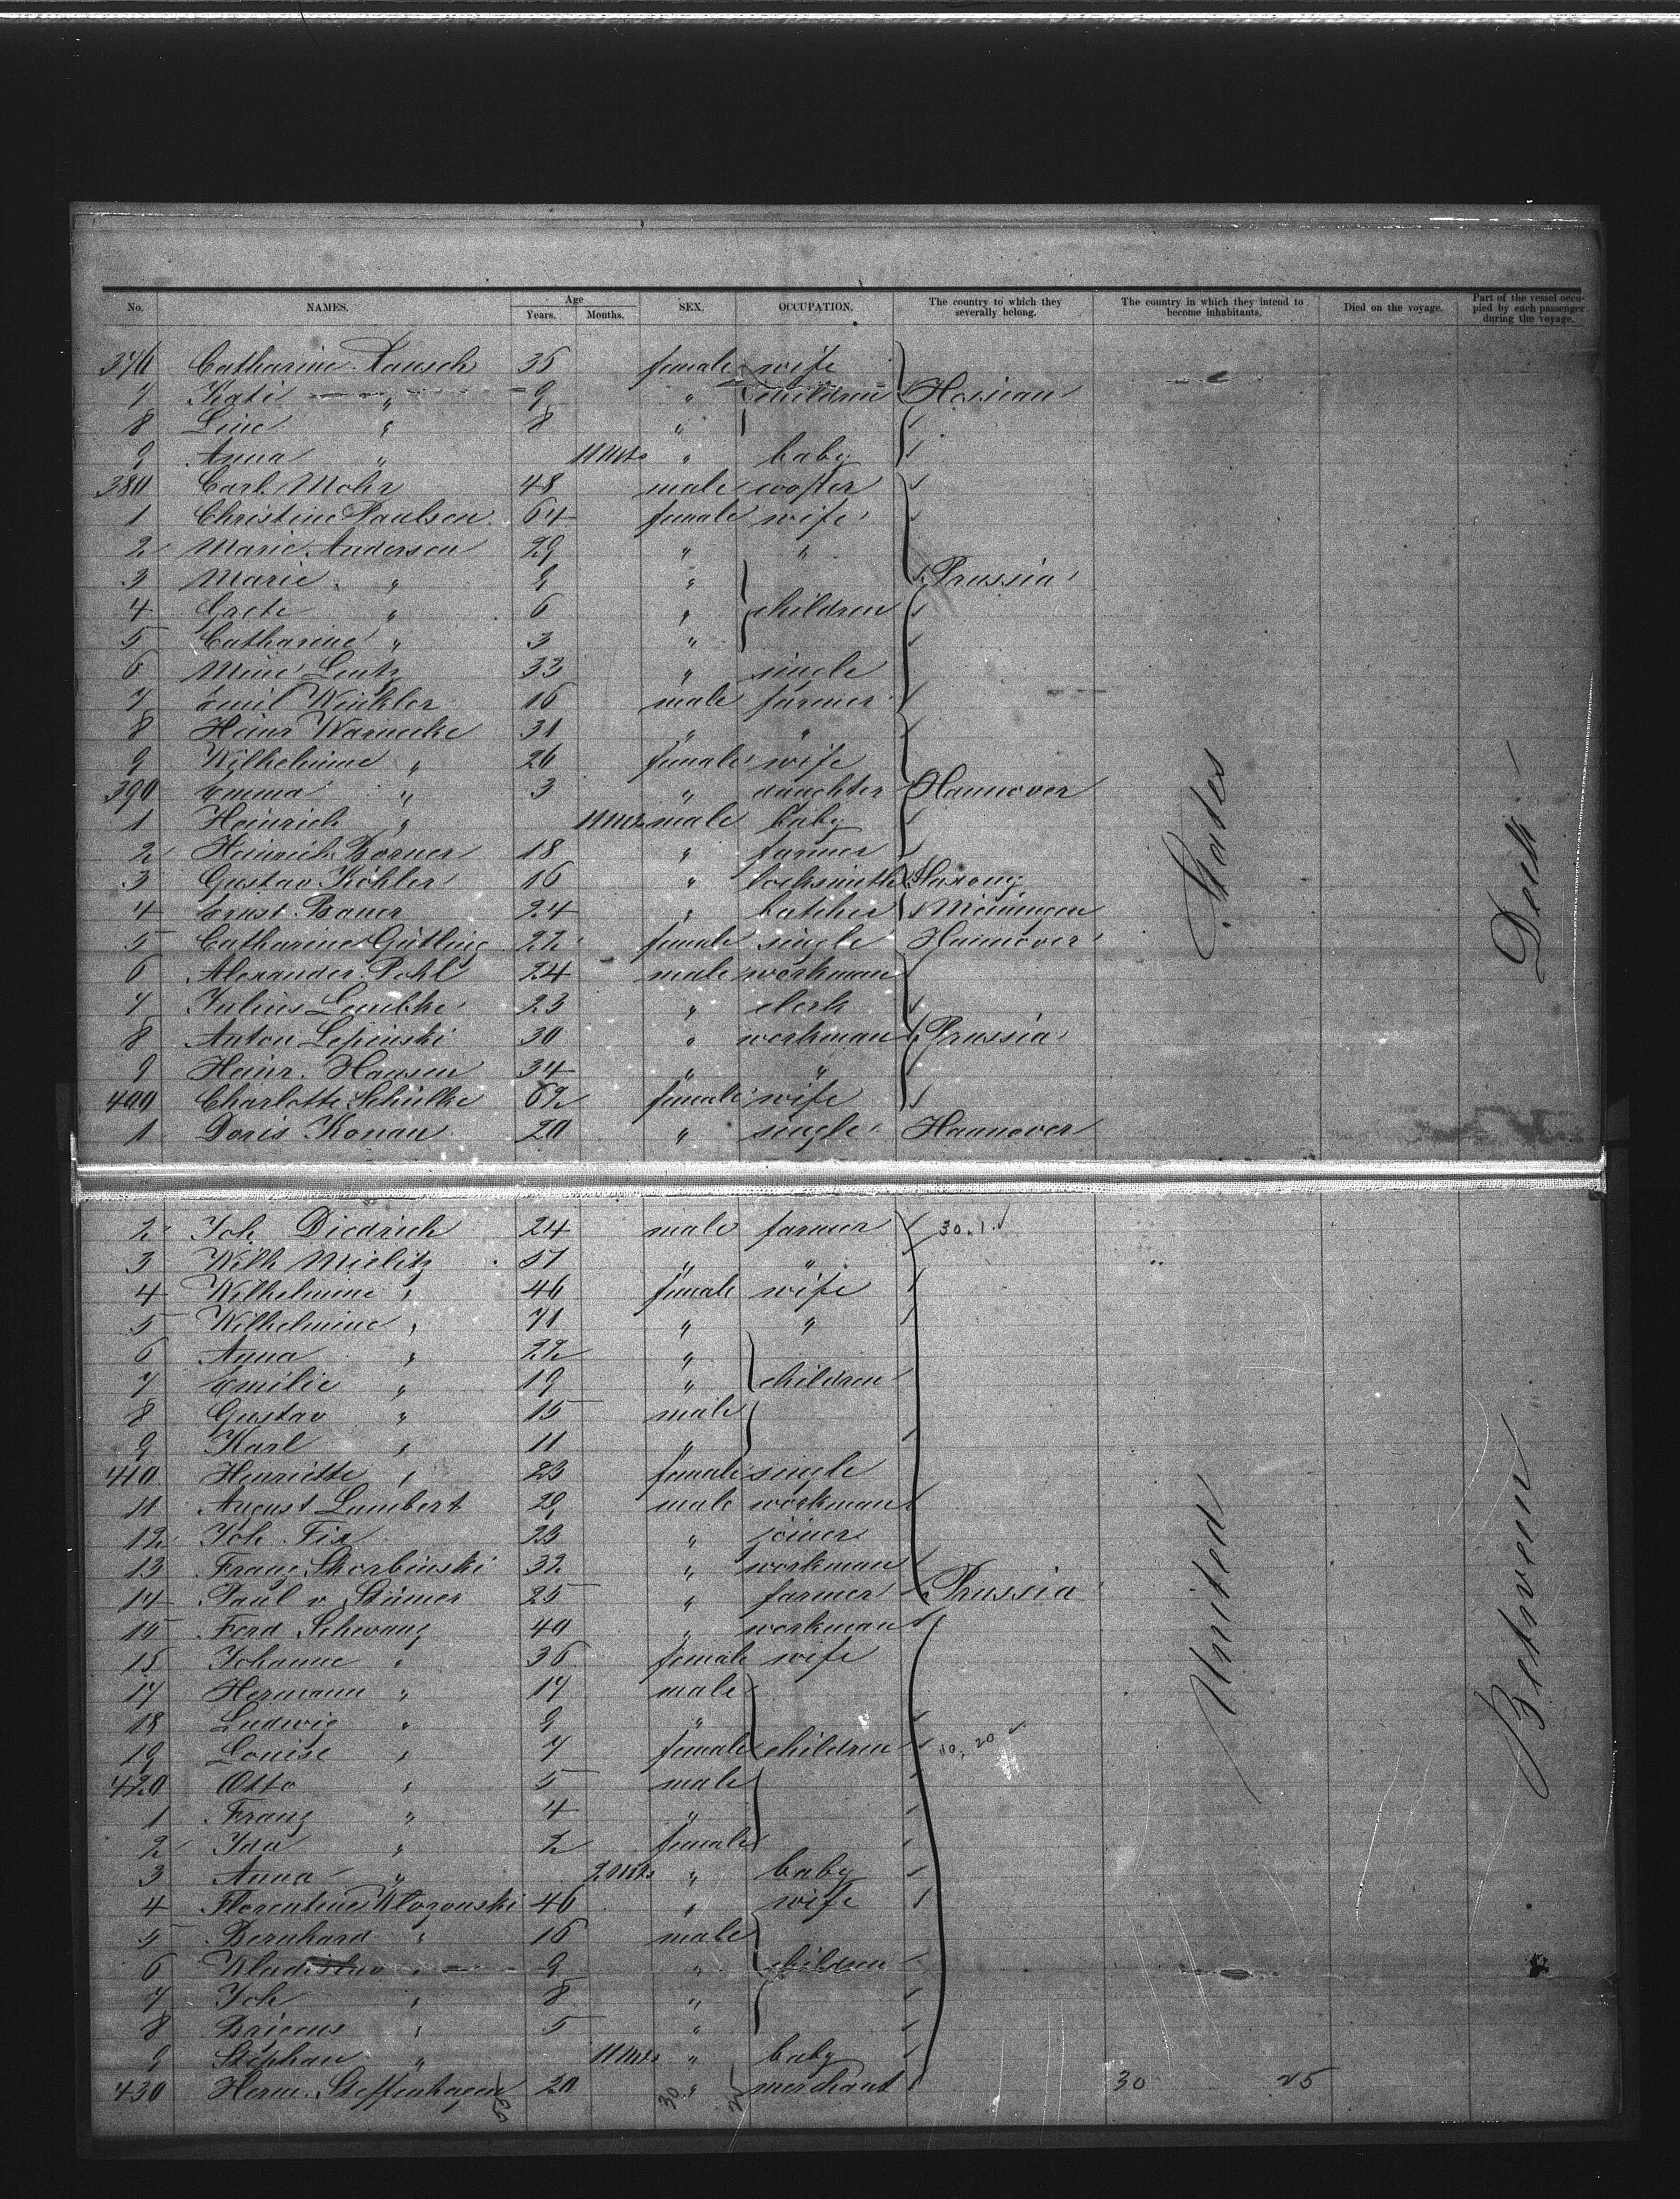 No. NAMES. Age Years. Months. SEX. OCCUPATION. The country to which they severally belong. The country in which they intend to become inhabitants. Died on the voyage. Part of the vessel occupied by each passenger during the voyage.
376 Catharine Rausch 35 female wife
7 Kati " 9 " children Hessian
8 Line " 8 "
9 Anna " 11 Mts " baby
380 Carl Mohr 48 male
1 Christine Paulsen 64 female wife
2 Marie Andersen 29 " "
3 Marie " 9 " Prussia
4 Grete " 6 " children
5 Catharine " 3 "
6 Mine Lentz 33 " single
7 Emil Winkler 16 male farmer
8 Heinr Warnecke 31 " "
9 Wilhelmine " 26 female wife
390 Emma " 3 " daughter Hannover
1 Heinrich " 11 Mts male baby
2 Heinrich Borner 18 " farmer
3 Gustav Köhler 16 " locksmith Saxony
4 Ernst Bauer 24 " butcher Meiningen
5 Catharine Gütling 22 female single Hannover
6 Alexander Pohl 24 male workman
7 Julius Lembke 23 " clerk
8 Anton Lepinski 30 " workman Prussia
9 Heinr. Hansen 34 " "
400 Charlotte Schülke 62 female wife
1 Doris Konau 20 " single Hannover
States
Deck
2 Joh. Diedrich 24 male farmer 30.1.
3 Wilh Mielitz 57 " " "
4 Wilhelmine " 46 female wife
5 Wilhelmine " 71 " "
6 Anna " 22 "
7 Emilie " 19 " children
8 Gustav " 15 male
9 Karl " 11 "
410 Henriette " 23 female single
11 August Lumbert 29 male workman
12 Joh. Fix 23 " joiner
13 Franz Skorbinski 32 " workman
14 Paul v Stümer 25 " farmer Prussia
15 Ferd Schwanz 40 " workman
15 Johanne " 36 female wife
17 Hermann " 17 male
18 Ludwig " 9 "
19 Louise " 7 female children 10, 20
420 Otto " 5 male
1 Franz " 4 "
2 Ida " 2 female
3 Anna " 2 Mts " baby
4 Florentine 46 " wife
5 Bernhard " 16 male
6 Wladislav " 9 " children
7 Joh " 8 "
8 " 5 "
9 Stephan " 11 Mts " baby
430 Herm. Steffenhagen 20 " merchant 30 25
30 25
United
Between